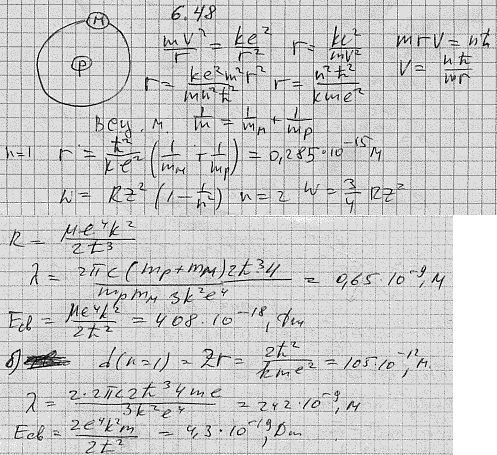 6.48
M
P
mv²/r = ke²/r² r = ke²/mv² mrv = nħ
v = nħ/mr
r = ke²m²r²/mn²ħ² r = n²ħ²/kme²
м. 1/m = 1/m_M + 1/m_P
n=1 r = ħ²/ke² (1/m_M + 1/m_P) = 0,285·10⁻¹⁵ м
W = RZ² (1 - 1/n²) n = 2 W = 3/4 RZ²
R = μe⁴k²/2ħ³
λ = 2πc(m_P + m_M)2ħ³4/m_P m_M 3k²e⁴ = 0,65·10⁻⁹, м
Eсв = μe⁴k²/2ħ² = 408·10⁻¹⁸, Дж
б) d(n=1) = 2r = 2ħ²/kme² = 105·10⁻¹², м.
λ = 2·2πc2ħ³4me/3k²e⁴ = 242·10⁻⁹, м
Eсв = 2e⁴k²m/2ħ² = 4,3·10⁻¹⁹, Дж